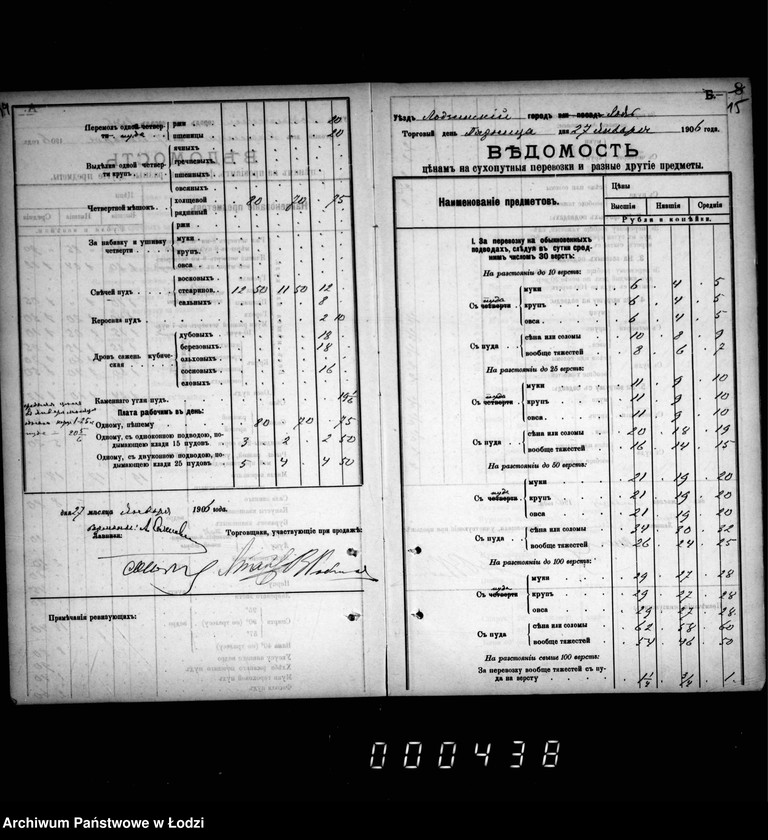 А
Перемолъ одной четвер-
ти пуда
ржи 20
пшеницы 20
Выдѣлка одной четвер-
ти крупъ
ячныхъ
гречневыхъ
пшенныхъ
овсяныхъ
Четвертной мѣшокъ
холщевой 80 70 75
рядняный
ржи
За набивку и ушивку
четверти
муки
крупъ
овса
Свѣчей пудъ
восковыхъ
стеаринов. 12 50 11 50 12
сальныхъ 8
Керосина пудъ 2 10
Дровъ сажень кубиче-
ская
дубовыхъ 18
березовыхъ 18
ольховыхъ
сосновыхъ 16
еловыхъ
Каменнаго угля пудъ
Плата рабочимъ въ день:
Одному, пѣшему 80 70 75
Одному, съ одноконною подводою, по-
дымающею клади 15 пудовъ 3 2 2 50
Одному, съ двуконною подводою, по-
дымающею клади 25 пудовъ 5 4 4 50
дня 27 мѣсяца Января 1906 года.
Торговцы, участвующіе при продажѣ:
Примѣчанія ревизующихъ:
Б. 8
15
Уѣздъ Лодзинскій городъ или посадъ Лодзь
Торговый день Пятница дня 27 Января 1906 года.
ВѢДОМОСТЬ
цѣнамъ на сухопутныя перевозки и разные другіе предметы.
Наименованіе предметовъ.
Цѣны
Высшія Низшія Среднія
Рубли и копѣйки.
I. За перевозку на обыкновенныхъ
подводахъ, слѣдуя въ сутки сред-
нимъ числомъ 30 верстъ:
На разстояніи до 10 верстъ:
Съ четверти пуда
муки 6 4 5
крупъ 6 4 5
овса 6 4 5
Съ пуда
сѣна или соломы 10 8 9
вообще тяжестей 8 6 7
На разстояніи до 25 верстъ:
Съ четверти пуда
муки 11 9 10
крупъ 11 9 10
овса 11 9 10
Съ пуда
сѣна или соломы 20 18 19
вообще тяжестей 16 14 15
На разстояніи до 50 верстъ:
Съ четверти пуда
муки 21 19 20
крупъ 21 19 20
овса 21 19 20
Съ пуда
сѣна или соломы 34 30 32
вообще тяжестей 26 24 25
На разстояніи до 100 верстъ:
Съ четверти пуда
муки 29 27 28
крупъ 29 27 28
овса 29 27 28
Съ пуда
сѣна или соломы 62 58 60
вообще тяжестей 54 46 50
На разстояніи свыше 100 верстъ:
За перевозку вообще тяжестей съ пу-
да на версту 1
000438
Archiwum Państwowe w Łodzi